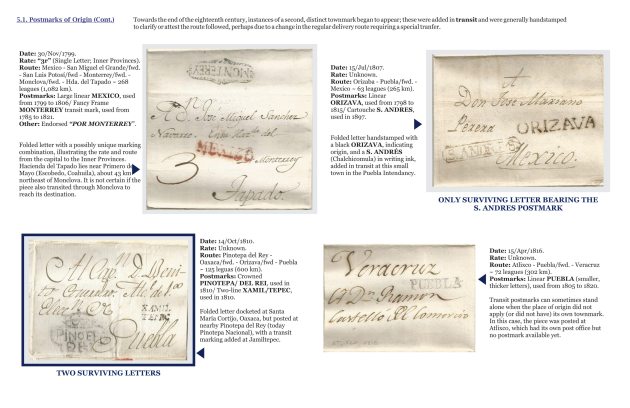 5.1. Postmarks of Origin (Cont.)
Towards the end of the eighteenth century, instances of a second, distinct townmark began to appear; these were added in transit and were generally handstamped
to clarify or attest the route followed, perhaps due to a change in the regular delivery route requiring a special tranfer.
Date: 30/Nov/1799.
Rate: “3r” (Single Letter; Inner Provinces).
Route: Mexico - San Miguel el Grande/fwd.
- San Luis Potosí/fwd - Monterrey/fwd.-
Monclova/fwd. - Hda. del Tapado ~ 268
leagues (1,082 km).
Postmarks: Large linear MEXICO, used
from 1799 to 1806/ Fancy Frame
MONTERREY transit mark, used from
1785 to 1821.
Other: Endorsed “POR MONTERREY”.
Folded letter with a possibly unique marking
combination, illustrating the rate and route
from the capital to the Inner Provinces.
Hacienda del Tapado lies near Primero de
Mayo (Escobedo, Coahuila), about 43 km
northeast of Monclova. It is not certain if the
piece also transited through Monclova to
reach its destination.
MONTERREY
A D. José Miguel Sanchez
Navarro.
MEXICO
Monterrey
3
Tapado.
Date: 15/Jul/1807.
Rate: Unknown.
Route: Orizaba - Puebla/fwd. -
Mexico ~ 63 leagues (265 km).
Postmarks: Linear
ORIZAVA, used from 1798 to
1815/ Cartouche S. ANDRES,
used in 1897.
Folded letter handstamped with
a black ORIZAVA, indicating
origin, and a S. ANDRÉS
(Chalchicomula) in writing ink,
added in transit at this small
town in the Puebla Intendancy.
A
Don José Mariano
Perera ORIZAVA
S. ANDRES
Mexico.
ONLY SURVIVING LETTER BEARING THE
S. ANDRES POSTMARK
XAMIL
TEPEC
PINOTE
Puebla
TWO SURVIVING LETTERS
Date: 14/Oct/1810.
Rate: Unknown.
Route: Pinotepa del Rey -
Oaxaca/fwd. - Orizava/fwd - Puebla
~ 125 leguas (600 km).
Postmarks: Crowned
PINOTEPA/ DEL REI, used in
1810/ Two-line XAMIL/TEPEC,
used in 1810.
Folded letter docketed at Santa
María Cortijo, Oaxaca, but posted at
nearby Pinotepa del Rey (today
Pinotepa Nacional), with a transit
marking added at Jamiltepec.
Veracruz
PUEBLA
A Dn Ramon
Castello del Comercio
Date: 15/Apr/1816.
Rate: Unknown.
Route: Atlixco - Puebla/fwd. - Veracruz
~ 72 leagues (302 km).
Postmarks: Linear PUEBLA (smaller,
thicker letters), used from 1805 to 1820.
Transit postmarks can sometimes stand
alone when the place of origin did not
apply (or did not have) its own townmark.
In this case, the piece was posted at
Atlixco, which had its own post office but
no postmark available yet.